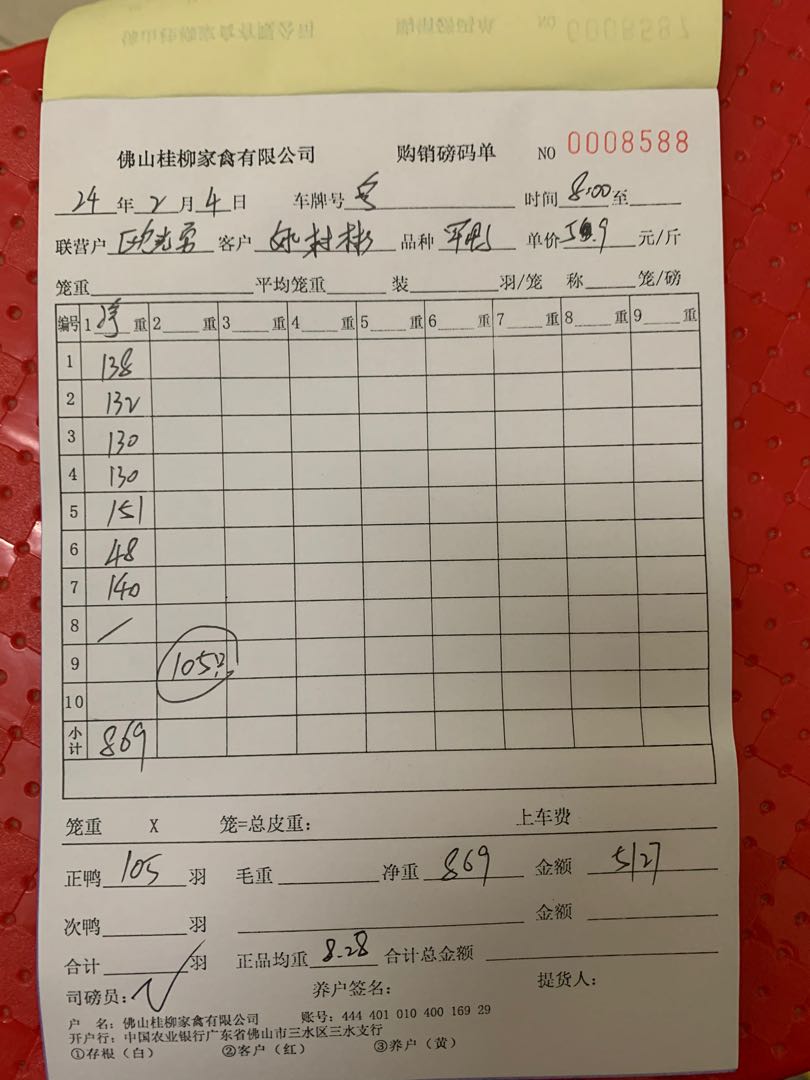 佛山桂柳家禽有限公司 购销磅码单 NO 0008588
24 年 2 月 4 日 车牌号 时间 8:00 至
联营户 区 客户 彬 品种 单价 5.9 元/斤
笼重 平均笼重 装 羽/笼 称 笼/磅
编号 1 净 重 2 重 3 重 4 重 5 重 6 重 7 重 8 重 9 重
1 138
2 132
3 130
4 130
5 151
6 48
7 140
8 /
9 105
10
小计 869
笼重 X 笼=总皮重: 上车费
正鸭 105 羽 毛重 净重 869 金额 5127
次鸭 羽 金额
合计 羽 正品均重 8.28 合计总金额
司磅员: 养户签名: 提货人:
户 名: 佛山桂柳家禽有限公司 账号: 444 401 010 400 169 29
开户行: 中国农业银行广东省佛山市三水区三水支行
①存根（白） ②客户（红） ③养户（黄）